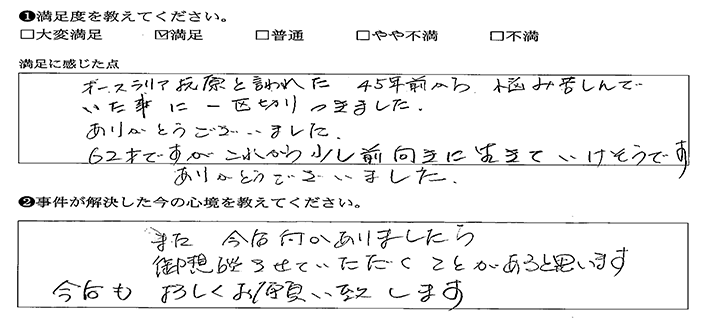 ❶満足度を教えてください。
□大変満足 ☑満足 □普通 □やや不満 □不満
満足に感じた点
オーストラリア抗原と言われた 45年前から 悩み苦しんで
いた事に 一区切りつきました。
ありがとうございました。
62才ですがこれから少し前向きに生きていけそうです
ありがとうございました。
❷事件が解決した今の心境を教えてください。
また 今后何かありましたら
御想談させていただくことがあると思います
今后も よろしくお願い致します